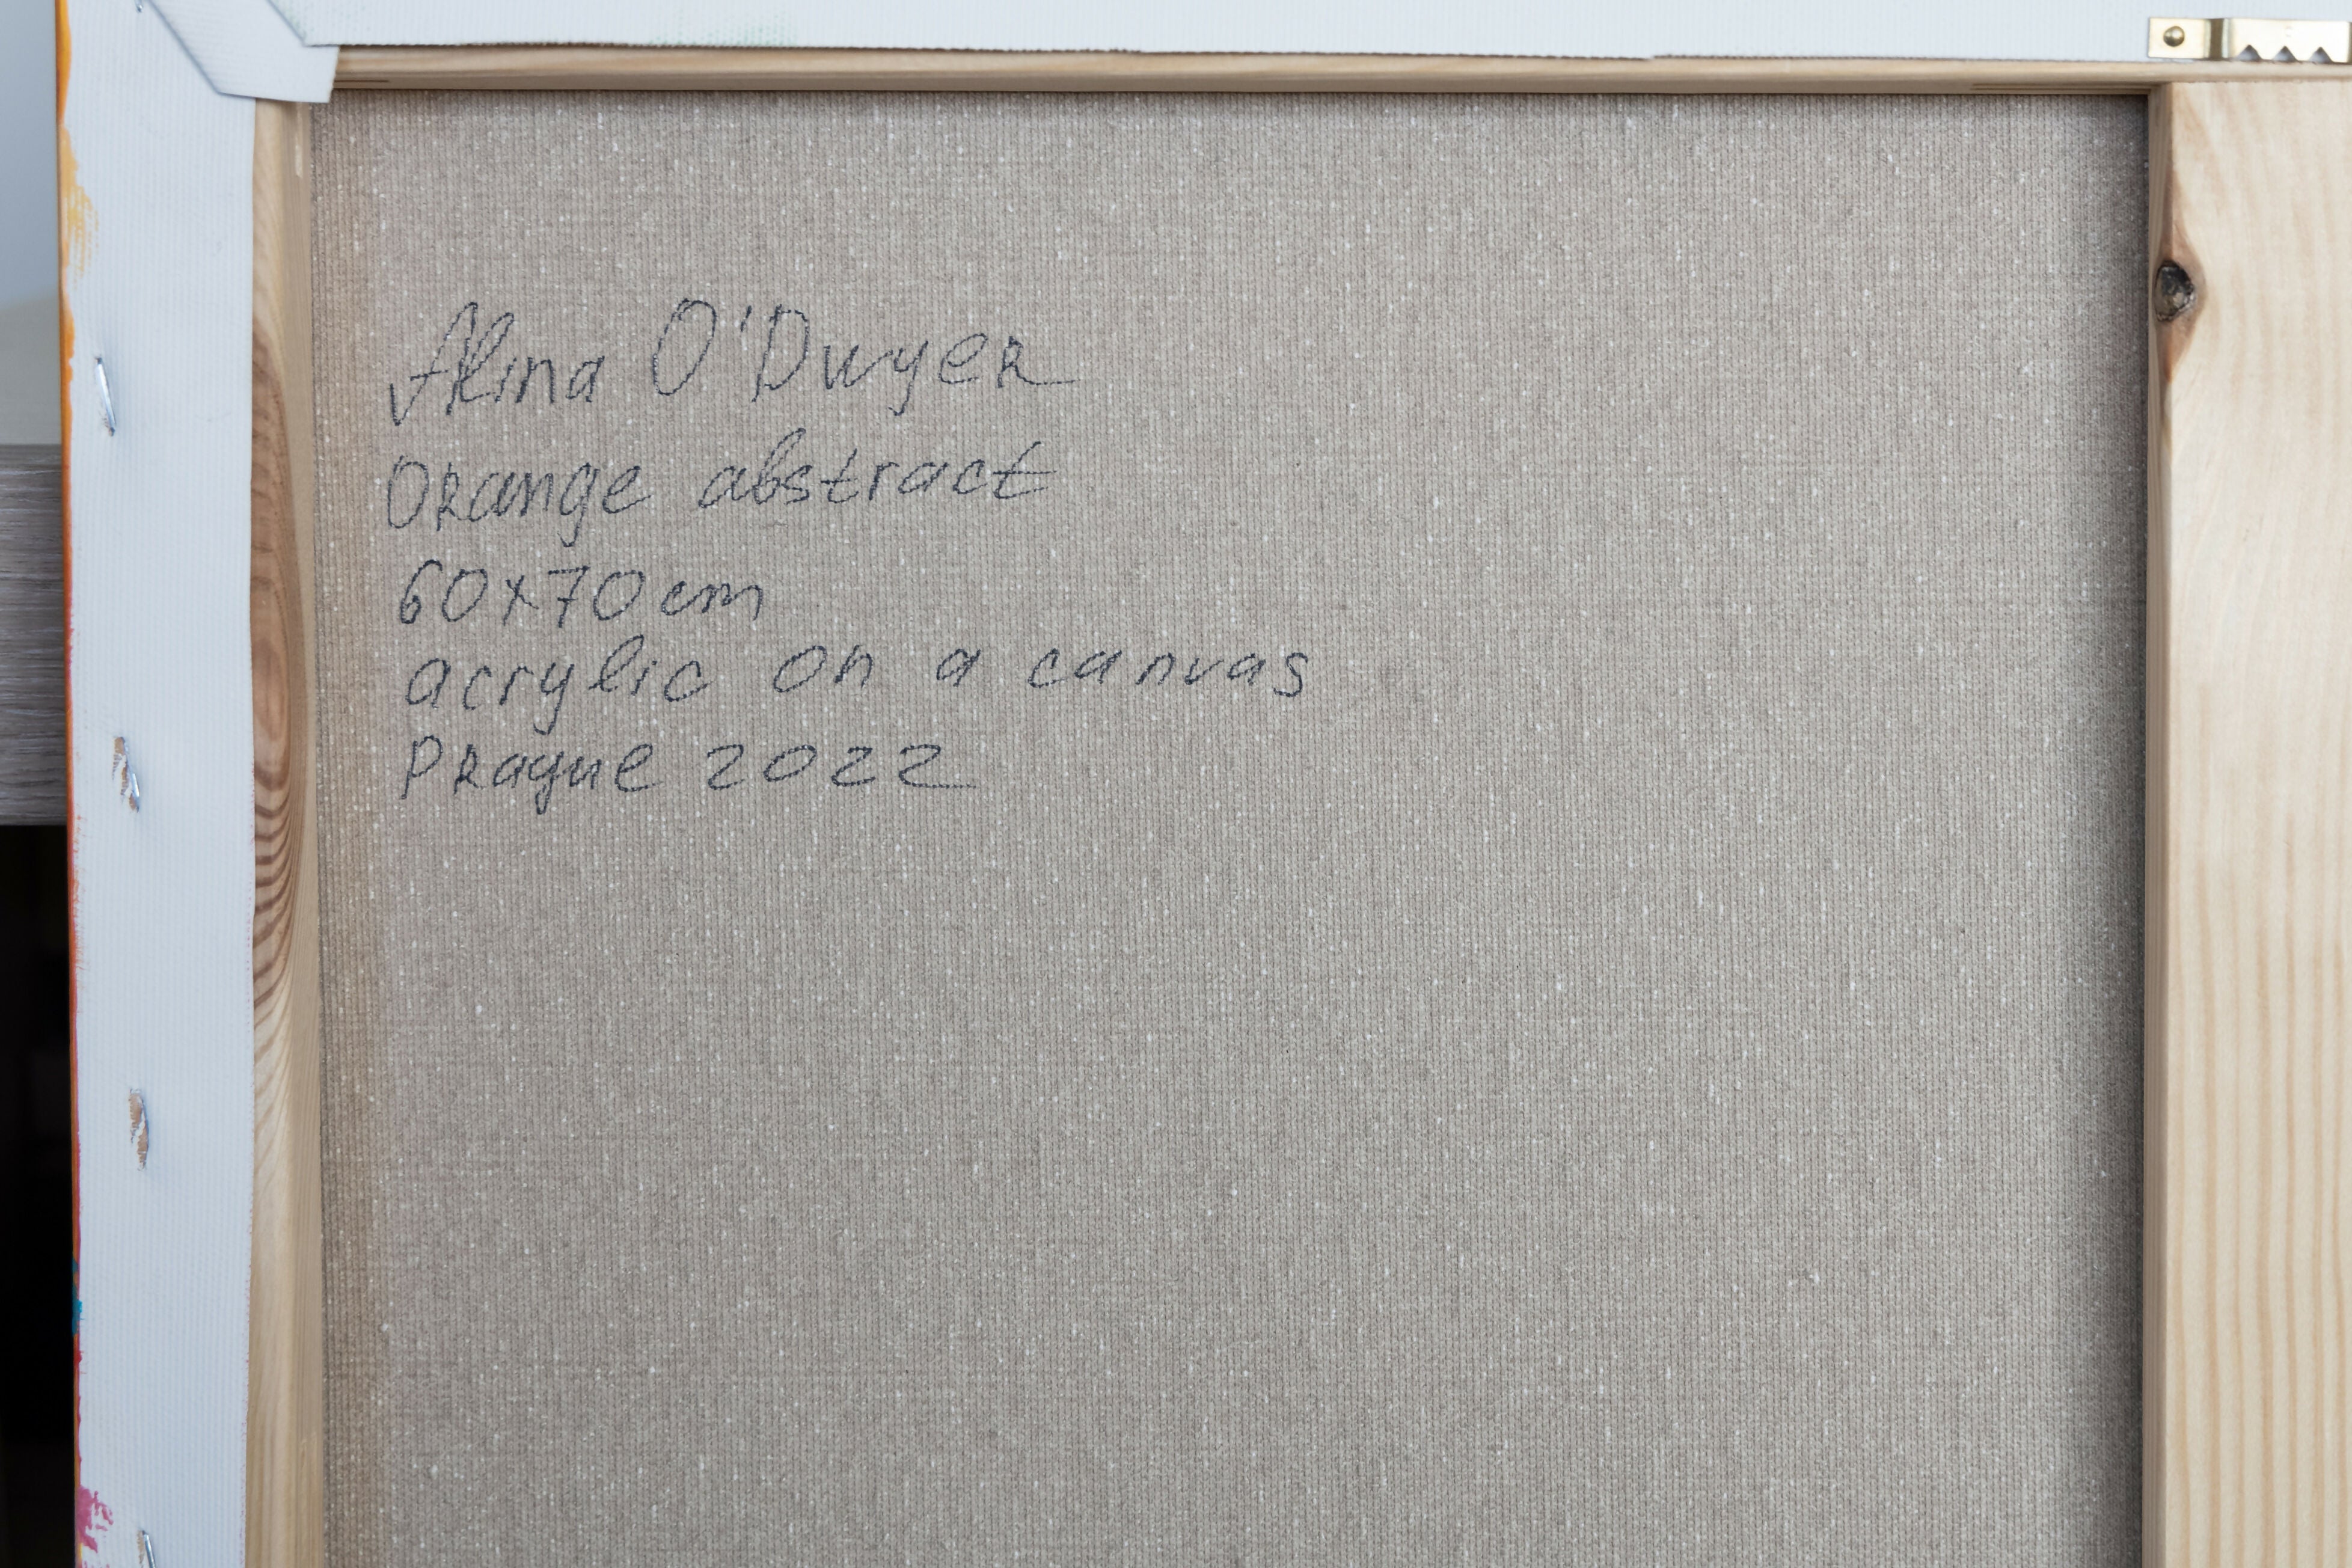 Alina O'Dwyer
Orange abstract
60x70cm
acrylic on a canvas
Prague 2022